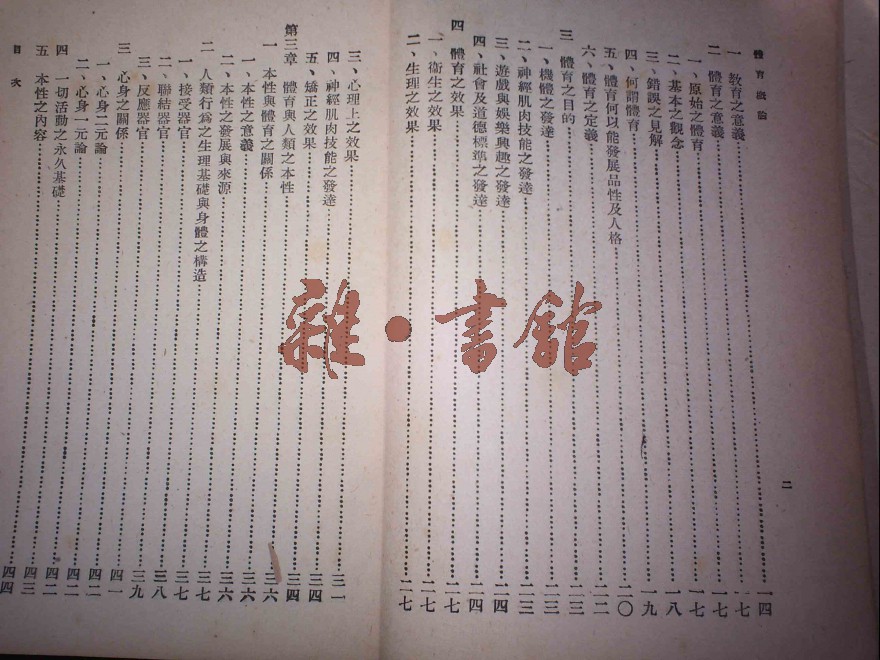 體育概論
二
一 敎育之意義……一四
二 體育之意義……一七
一、原始之體育……一七
二、基本之觀念……一七
三、錯誤之見解……一八
四、何謂體育……一九
五、體育何以能發展品性及人格……二〇
六、體育之定義……二二
三 體育之目的……二三
一、機體之發達……二三
二、神經肌肉技能之發達……二三
三、遊戲與娛樂興趣之發達……二四
四、社會及道德標準之發達……二四
四 體育之效果……二七
一、衞生之效果……二七
二、生理之效果……二七
三、心理上之效果……三一
四、神經肌肉技能之發達……三四
五、矯正之效果……三四
第三章 體育與人類之本性……三六
一 本性與體育之關係……三六
一、本性之意義……三六
二、本性之發展與來源……三七
二 人類行爲之生理基礎與身體之構造……三七
一、接受器官……三八
二、聯結器官……三九
三、反應器官……四一
三 心身之關係……四二
一、心身二元論……四二
二、心身一元論……四二
四 一切活動之永久基礎……四三
五 本性之內容……四四
目次
雜·書館